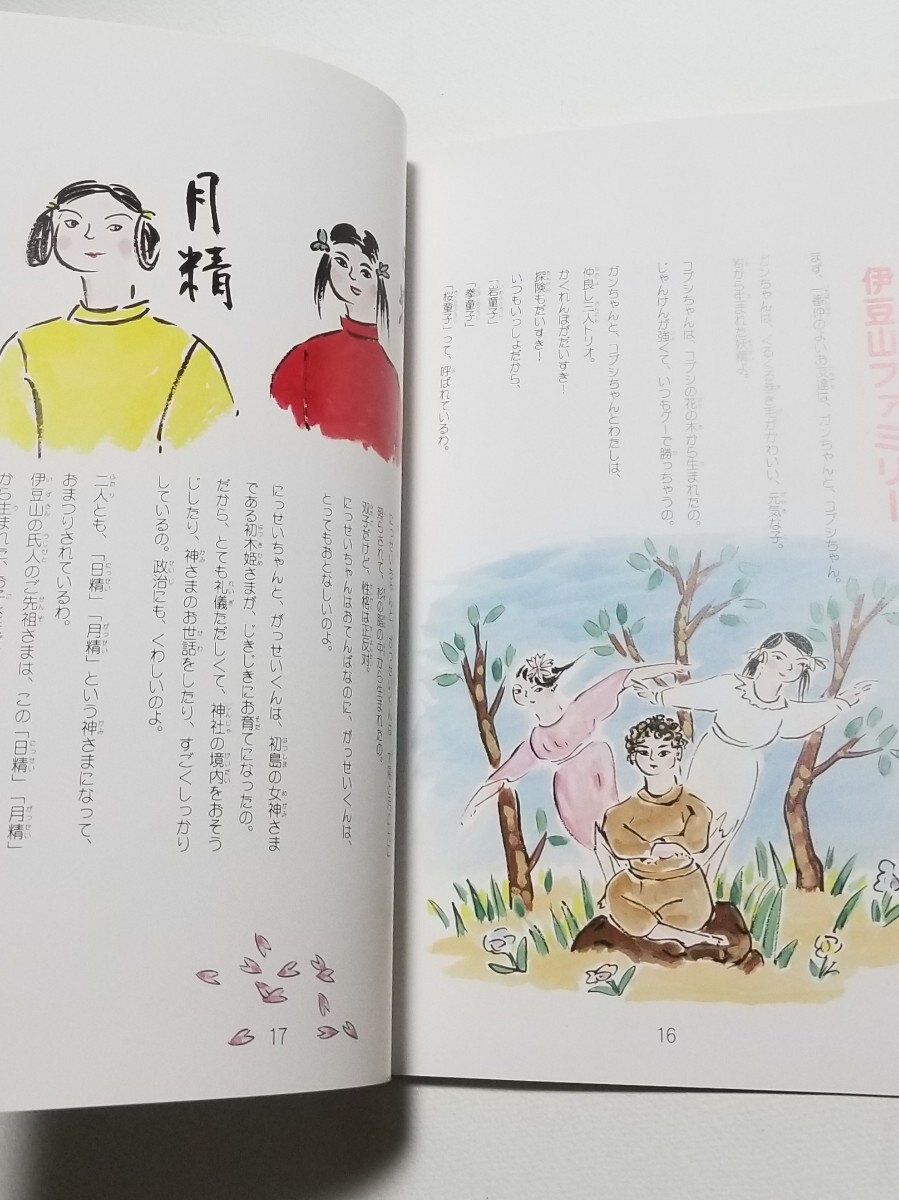 伊豆山ファミリー
まず、一番仲のよいお友達は、ガンちゃんと、コブシちゃん。
ガンちゃんは、くるくる巻き毛がかわいい、元気な子。
岩から生まれた妖精よ。
コブシちゃんは、コブシの花の木から生まれたの。
じゃんけんが強くて、いつもグーで勝っちゃうの。
ガンちゃんと、コブシちゃんとわたしは、
仲良し三人トリオ。
かくれんぼがだいすき!
探険もだいすき!
いつもいっしょだから、
「岩童子」
「拳童子」
「桜童子」って、呼ばれているわ。
16
月精
双子だけど、性格は正反対。
にっせいちゃんはおてんばなのに、がっせいくんは、
とってもおとなしいのよ。
にっせいちゃんと、がっせいくんは、初島の女神さま
である初木姫さまが、じきじきにお育てになったの。
だから、とても礼儀ただしくて、神社の境内をおそう
じしたり、神さまのお世話をしたり、すごくしっかり
しているの。政治にも、くわしいのよ。
二人とも、「日精」「月精」という神さまになって、
おまつりされているわ。
伊豆山の氏人のご先祖さまは、この「日精」「月精」
から生まれた
17